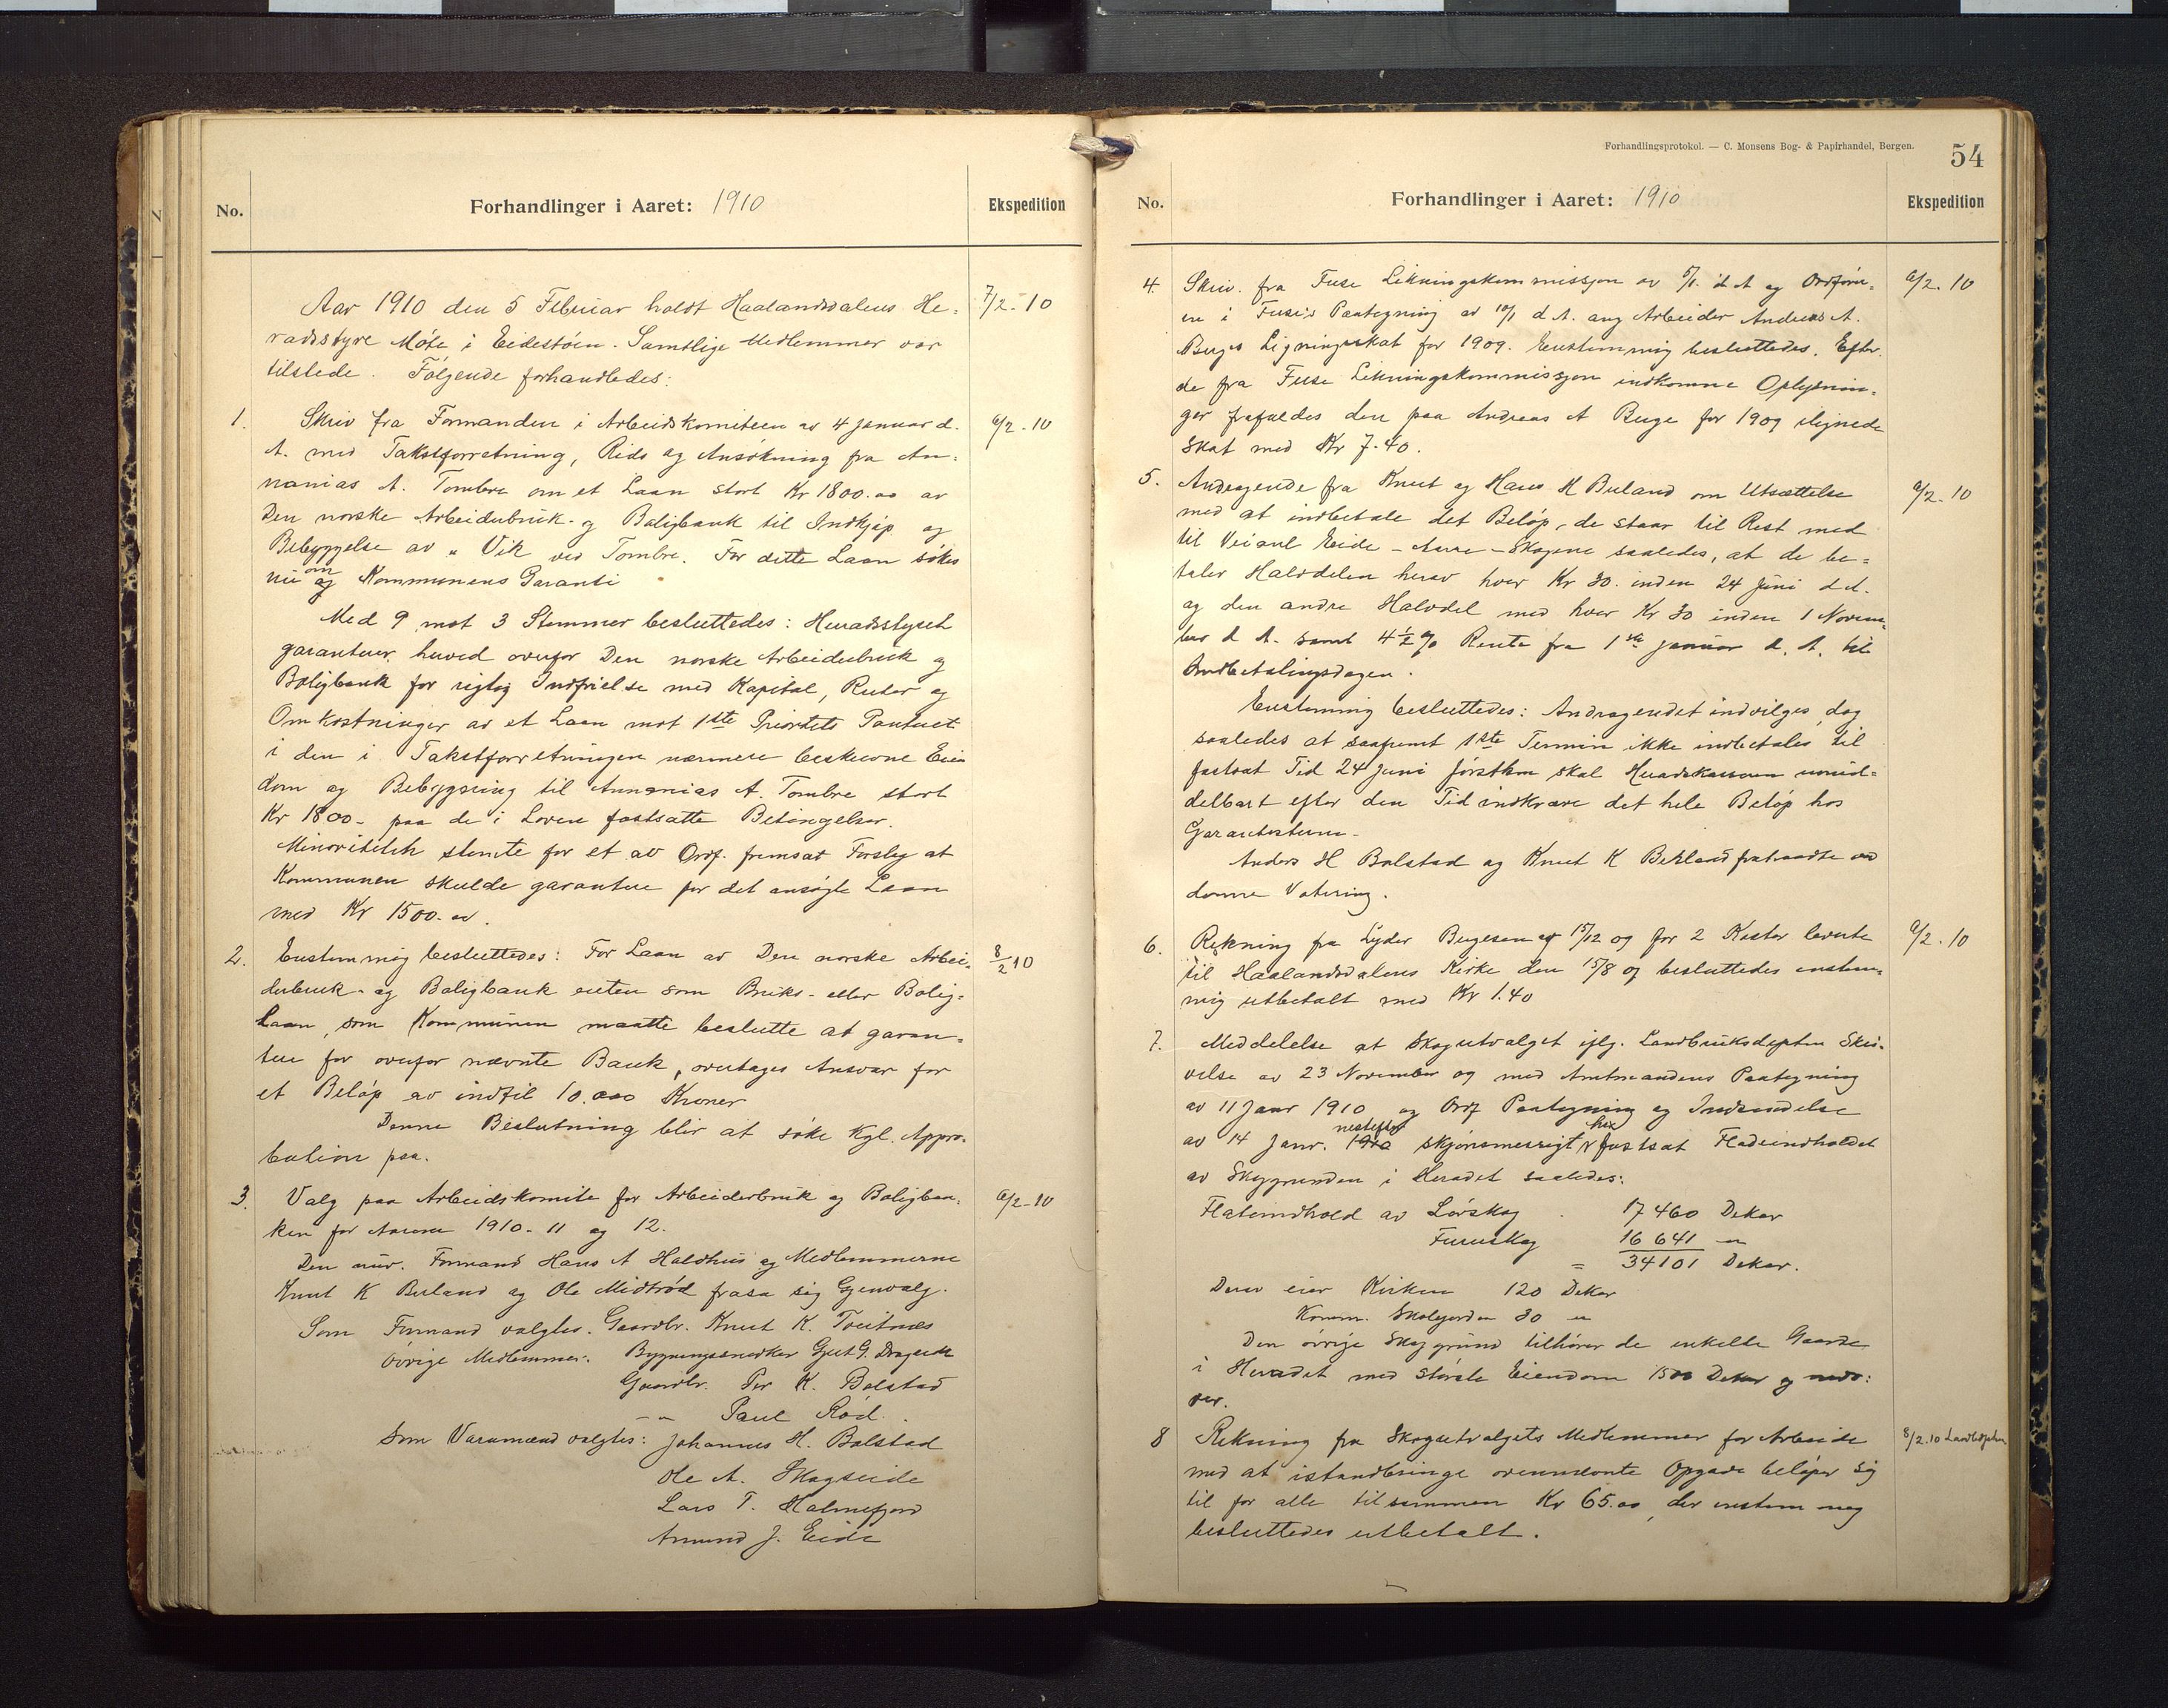 No.
Forhandlinger i Aaret: 1910
Ekspedition
Aar 1910 den 5 Februar holdt Haalandsdalens He- 7/2-10
radsstyre Møte i Eidestøen. Samtlige Medlemmer var
tilstede. Følgende forhandledes:
1. Skriv fra Formanden i Arbeidskomiteen av 4 Januar d. 6/2-10
A. med Takstforretning, Rids og Ansökning fra An-
nanias A. Tombre om et Laan stort Kr 1800.00 av
Den norske Arbeiderbruk- og Boligbank til Indkjøp og
Bebyggelse av " Vik ved Tombre. For dette Laan søkes
nu om Kommunens Garanti
Med 9 mot 3 Stemmer besluttedes: Heradsstyret
garanterer herved overfor Den norske Arbeiderbruk og
Boligbank for rigtig Indfrielse med Kapital, Renter og
Omkostninger av et Laan mot 1ste Prioritets Panteret
i den i Takstforretningen nærmere beskrevne Eien
dom og Bebygning til Annanias A. Tombre stort
Kr 1800- paa de i Loven fastsatte Betingelser.
Minoriteten stemte for et av Ordf. fremsat Forslag at
Kommunen skulde garantere for det ansøgte Laan
med Kr 1500.00.
2. Enstemmig besluttedes: For Laan av Den norske Arbei- 8/2 10
derbruk- og Boligbank enten som Bruks- eller Bolig-
Laan, som Kommunen maatte beslutte at garan-
tere for overfor nævnte Bank, overtages Ansvar for
et Beløp av indtil 10.000 Kroner
Denne Beslutning blir at søke Kgl. Appro-
bation paa.
3. Valg paa Arbeidskomite for Arbeiderbruk og Boligban- 6/2-10
ken for Aarene 1910-11 og 12.
Den nuv. Formand Hans A Holdhus og Medlemmerne
Knut K Berland og Ole Midtrød frasa sig Gjenvalg.
Som Formand valgtes. Gaardbr. Knut K. Tveitnes
Øvrige Medlemmer. Bygningssnedker Gjert G. Drageide
Gaardbr. Per K. Bolstad
-"- Paul Rød.
Som Varamænd valgtes: Johannes H. Bolstad
Ole A. Skogseide
Lars T. Holmefjord
Amund J. Eide
Forhandlingsprotokol. — C. Monsens Bog- & Papirhandel, Bergen.
54
No.
Forhandlinger i Aaret: 1910
Ekspedition
4. Skriv. fra Fuse Likningskommissjon av 5/1. d A og Ordføre- 6/2.10
ren i Fuse's Paategning av 10/1 d A. ang Arbeider Andreas A.
Berges Ligningsskat for 1909. Enstemmig besluttedes. Efter
de fra Fuse Likningskommissjon indkomne Oplysnin-
ger frafaldes den paa Andreas A Berge for 1909 utlignede
Skat med Kr 7.40.
5. Andragende fra Knut og Hans H Berland om Utsættelse 6/2.10
med at indbetale det Beløp, de staar til Rest med
til Veianl Eide - Aarre - Skogene saaledes, at de be-
taler Halvdelen herav hver Kr 30. inden 24 Juni d A.
og den andre Halvdel med hver Kr 30 inden 1 Novem-
ber d A. samt 4 1/2 % Rente fra 1ste Januar d. A. til
Indbetalingsdagen.
Enstemmig besluttedes: Andragendet indvilges, dog
saaledes at saafremt 1ste Termin ikke indbetales til
fastsat Tid 24 Juni førstkm skal Heradskassereren umid-
delbart efter den Tid indkræve det hele Beløp hos
Garantisterne.
Anders H Bolstad og Knut K Berland fratraadte ved
denne Votering.
6. Rekning fra Lyder Bergesen af 15/12 09 for 2 Koster leverte 6/2.10
til Haalandsdalens Kirke den 15/8 09 besluttedes enstem-
mig utbetalt med Kr 1.40
7. Meddelelse at Skogutvalget ifølg. Landbruksdeptm Skri-
velse av 23 November 09 med Amtmandens Paategning
av 11 Janr 1910 og Ordf Paategning og Indsendelse
av 14 Janr. 1910 skjønsmessigt har fastsat Fladeindholdet
av Skoggrunden i Heradet saaledes:
Flateindhold av Løvskog 17 460 Dekar
Furuskog 16 641 "
= 34101 Dekar.
Derav eier Kirken 120 Dekar
Komm. Skolejorden 30 "
Den øvrige Skoggrund tilhører de enkelte Gaarde
i Heradet med største Eiendom 1500 Dekar og nedo-
ver.
8 Rekning fra Skogutvalgets Medlemmer for Arbeide 8/2.10 Landbdptm
med at istandbringe ovennevnte Opgave beløper sig
til for alle tilsammen Kr 65.00, der enstemmig
besluttedes utbetalt.